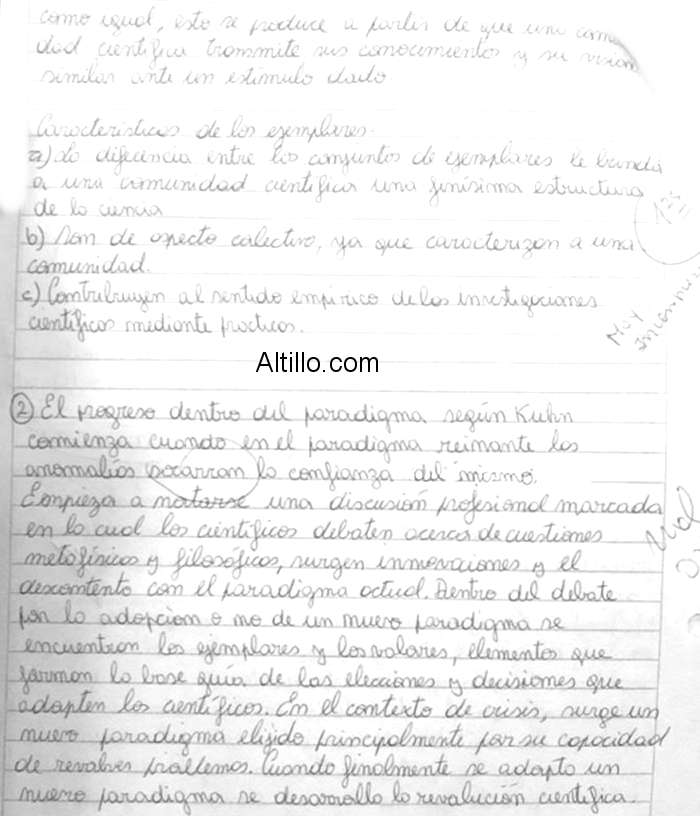 como igual, esto se produce a partir de que una comu
dad científica transmite sus conocimientos y su visión
similar ante un estímulo dado
Características de los ejemplares.
a) La diferencia entre los conjuntos de ejemplares le brinda
a una comunidad científica una finísima estructura
de la ciencia
b) Son de aspecto colectivo, ya que caracterizan a una
comunidad.
c) Contribuyen al sentido empírico de las investigaciones
científicas mediante practicas.
Muy
Altillo.com
② El progreso dentro del paradigma según Kuhn
comienza cuando en el paradigma reinante las
anomalías socarran la confianza del mismo.
Empieza a notarse una discusión profesional marcada
en la cual los científicos debaten acerca de cuestiones
metafísicas y filosóficas, surgen innovaciones y el
descontento con el paradigma actual. Dentro del debate
por la adopcion o no de un nuevo paradigma se
encuentran los ejemplares y los valores, elementos que
forman la base guía de las elecciones y decisiones que
adopten los científicos. En el contexto de crisis, surge un
nuevo paradigma elegido principalmente por su capacidad
de resolver problemas. Cuando finalmente se adopta un
nuevo paradigma se desarrolla la revolución científica.
Mal